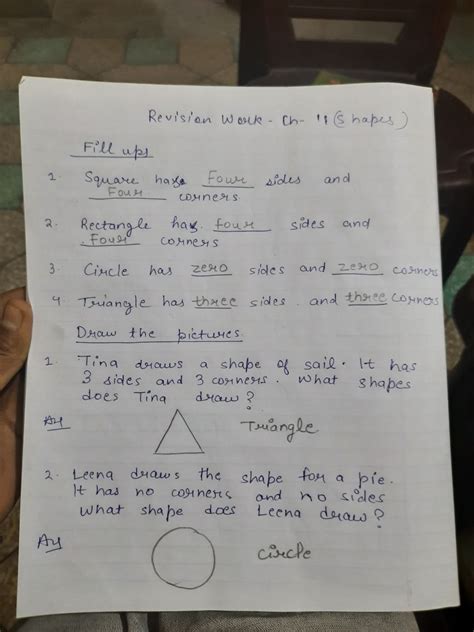 Revision Work - Ch- 11 (Shapes)
Fill ups
1. Square has Four sides and
Four corners
2. Rectangle has four sides and
Four corners
3. Circle has zero sides and zero corners
4. Triangle has three sides . and three corners
Draw the pictures
1. Tina draws a shape of sail. It has
3 sides and 3 corners. What shapes
does Tina draw?
Triangle
2. Leena draws the shape for a pie.
It has no corners and no sides
What shape does Leena draw?
circle